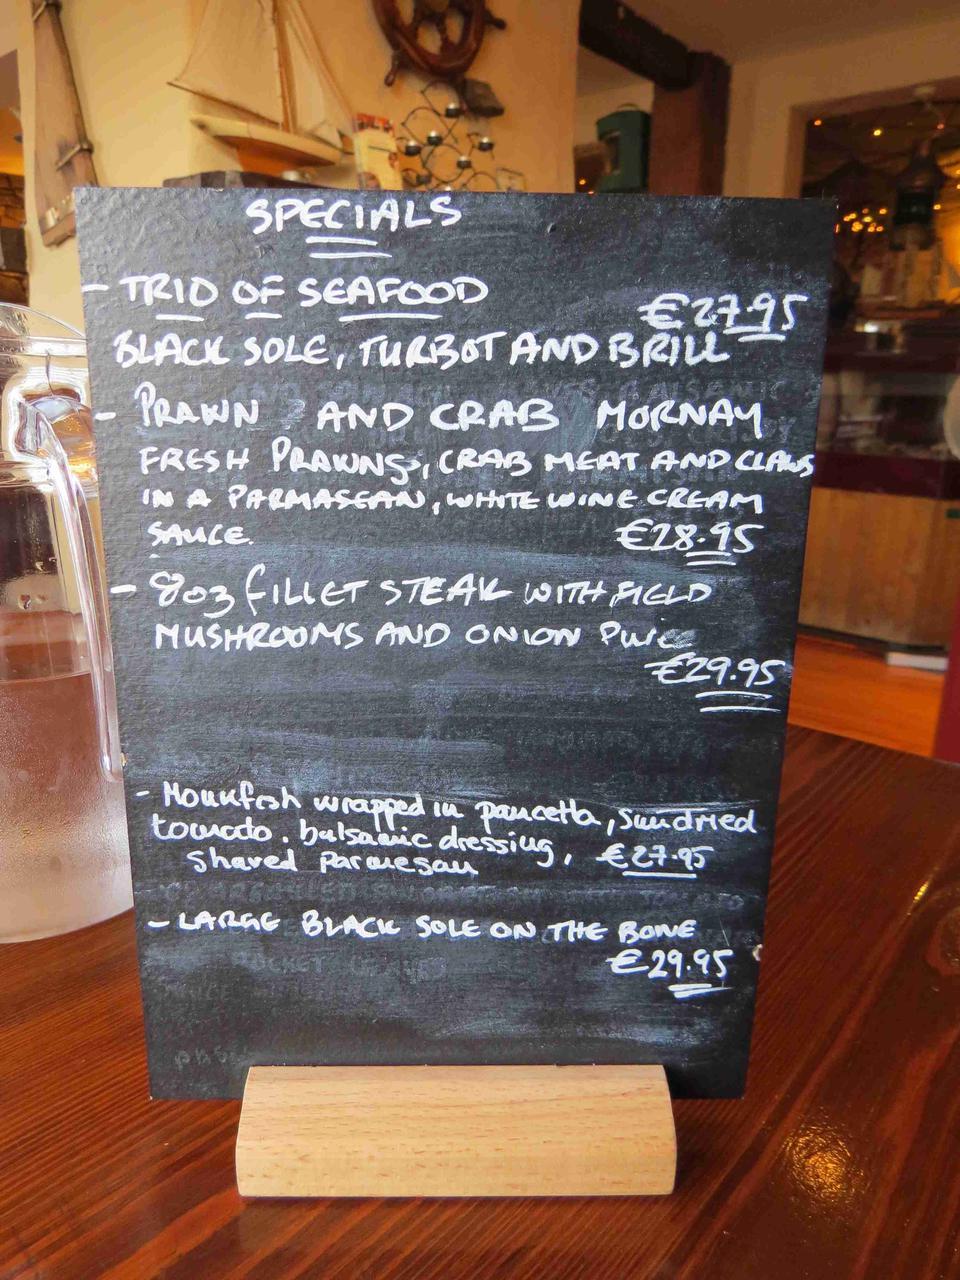 SPECIALS
- TRIO OF SEAFOOD
€27.95
BLACK SOLE, TURBOT AND BRILL
- PRAWN AND CRAB MORNAY
FRESH PRAWNS, CRAB MEAT AND CLAWS
IN A PARMASEAN, WHITE WINE CREAM
SAUCE. €28.95
- 8oz FILLET STEAK WITH FIELD
MUSHROOMS AND ONION
€29.95
- Monkfish wrapped in pancetta, Sundried
tomato. balsamic dressing,
Shaved Parmesan €27.95
- LARGE BLACK SOLE ON THE BONE
€29.95